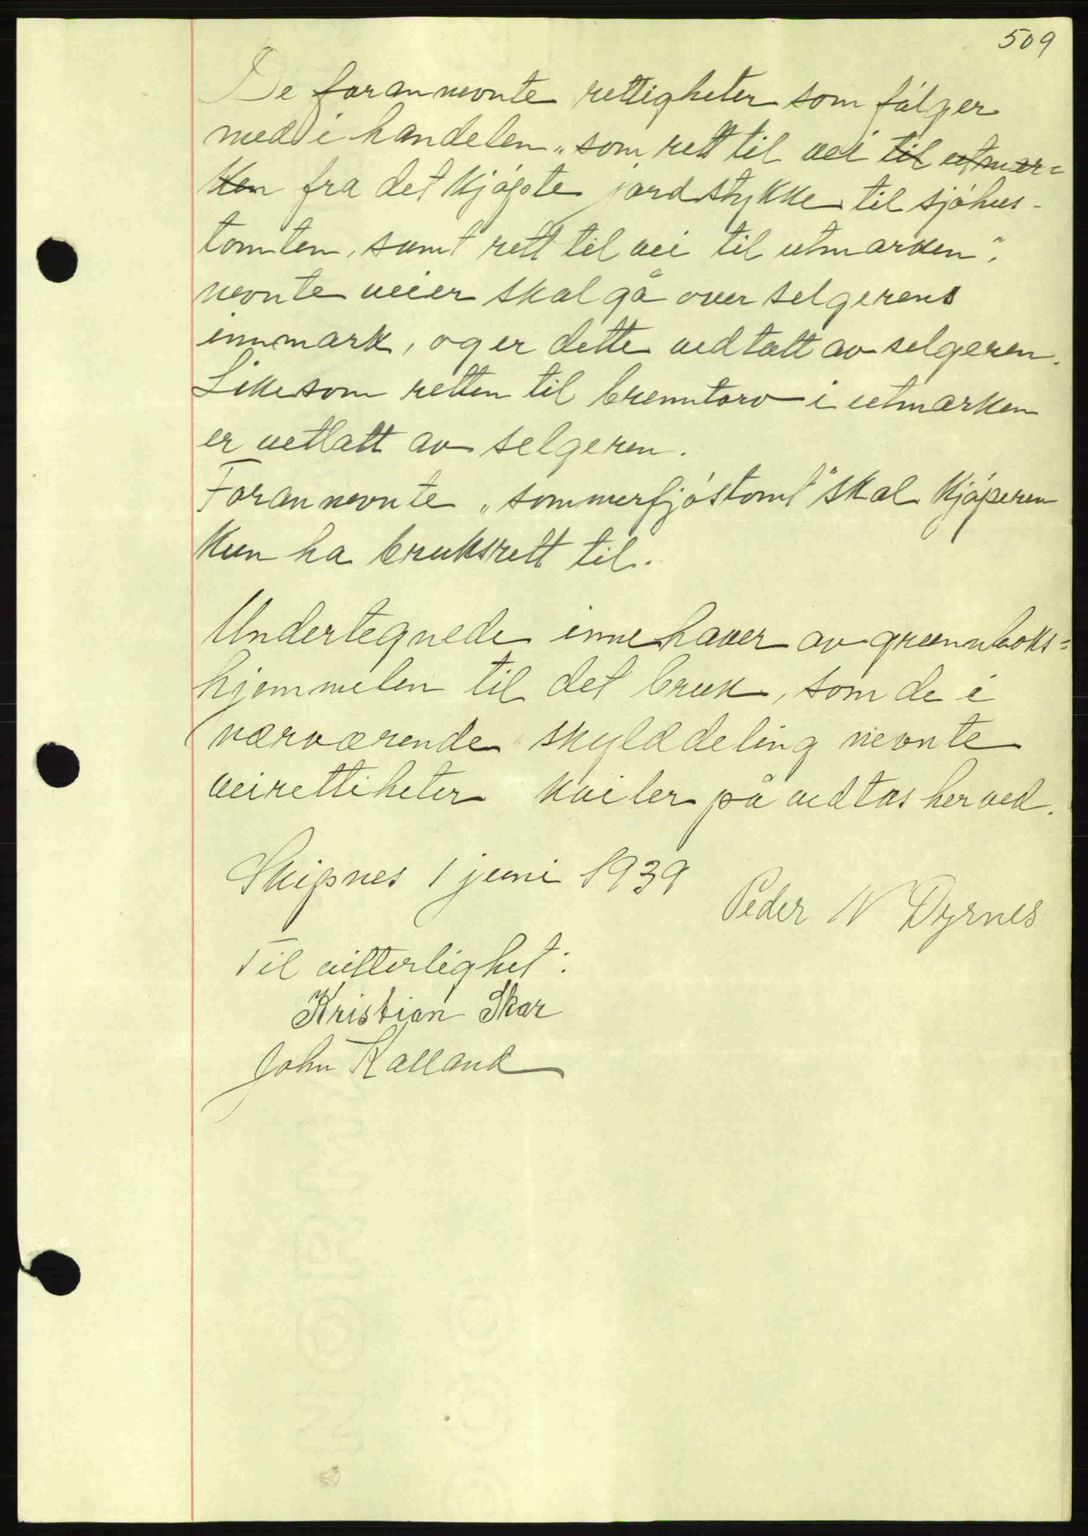 509
De forannevnte rettigheter som fölger
med i handelen „som rett til vei til utmar=
ken fra det kjöpte jordstykke til sjöhus-
tomten, samt rett til vei til utmarken",
nevnte veier skal gå over selgerens
innmark, og er dette vedtatt av selgeren.
Likesom retten til brenntorv i utmarken
er vettatt av selgeren.
Forannevnte „sommerfjöstomt" skal kjöperen
kun ha bruksrett til.
Undertegnede innehaver av grunnboks=
hjemmelen til det bruk, som de i
nærværende skylddeling nevnte
veirettiheter kviler på vedtas herved.
Skipnes 1 juni 1939
Peder N Dyrnes
Til vitterlighet:
Kristian Skar
John Kalland